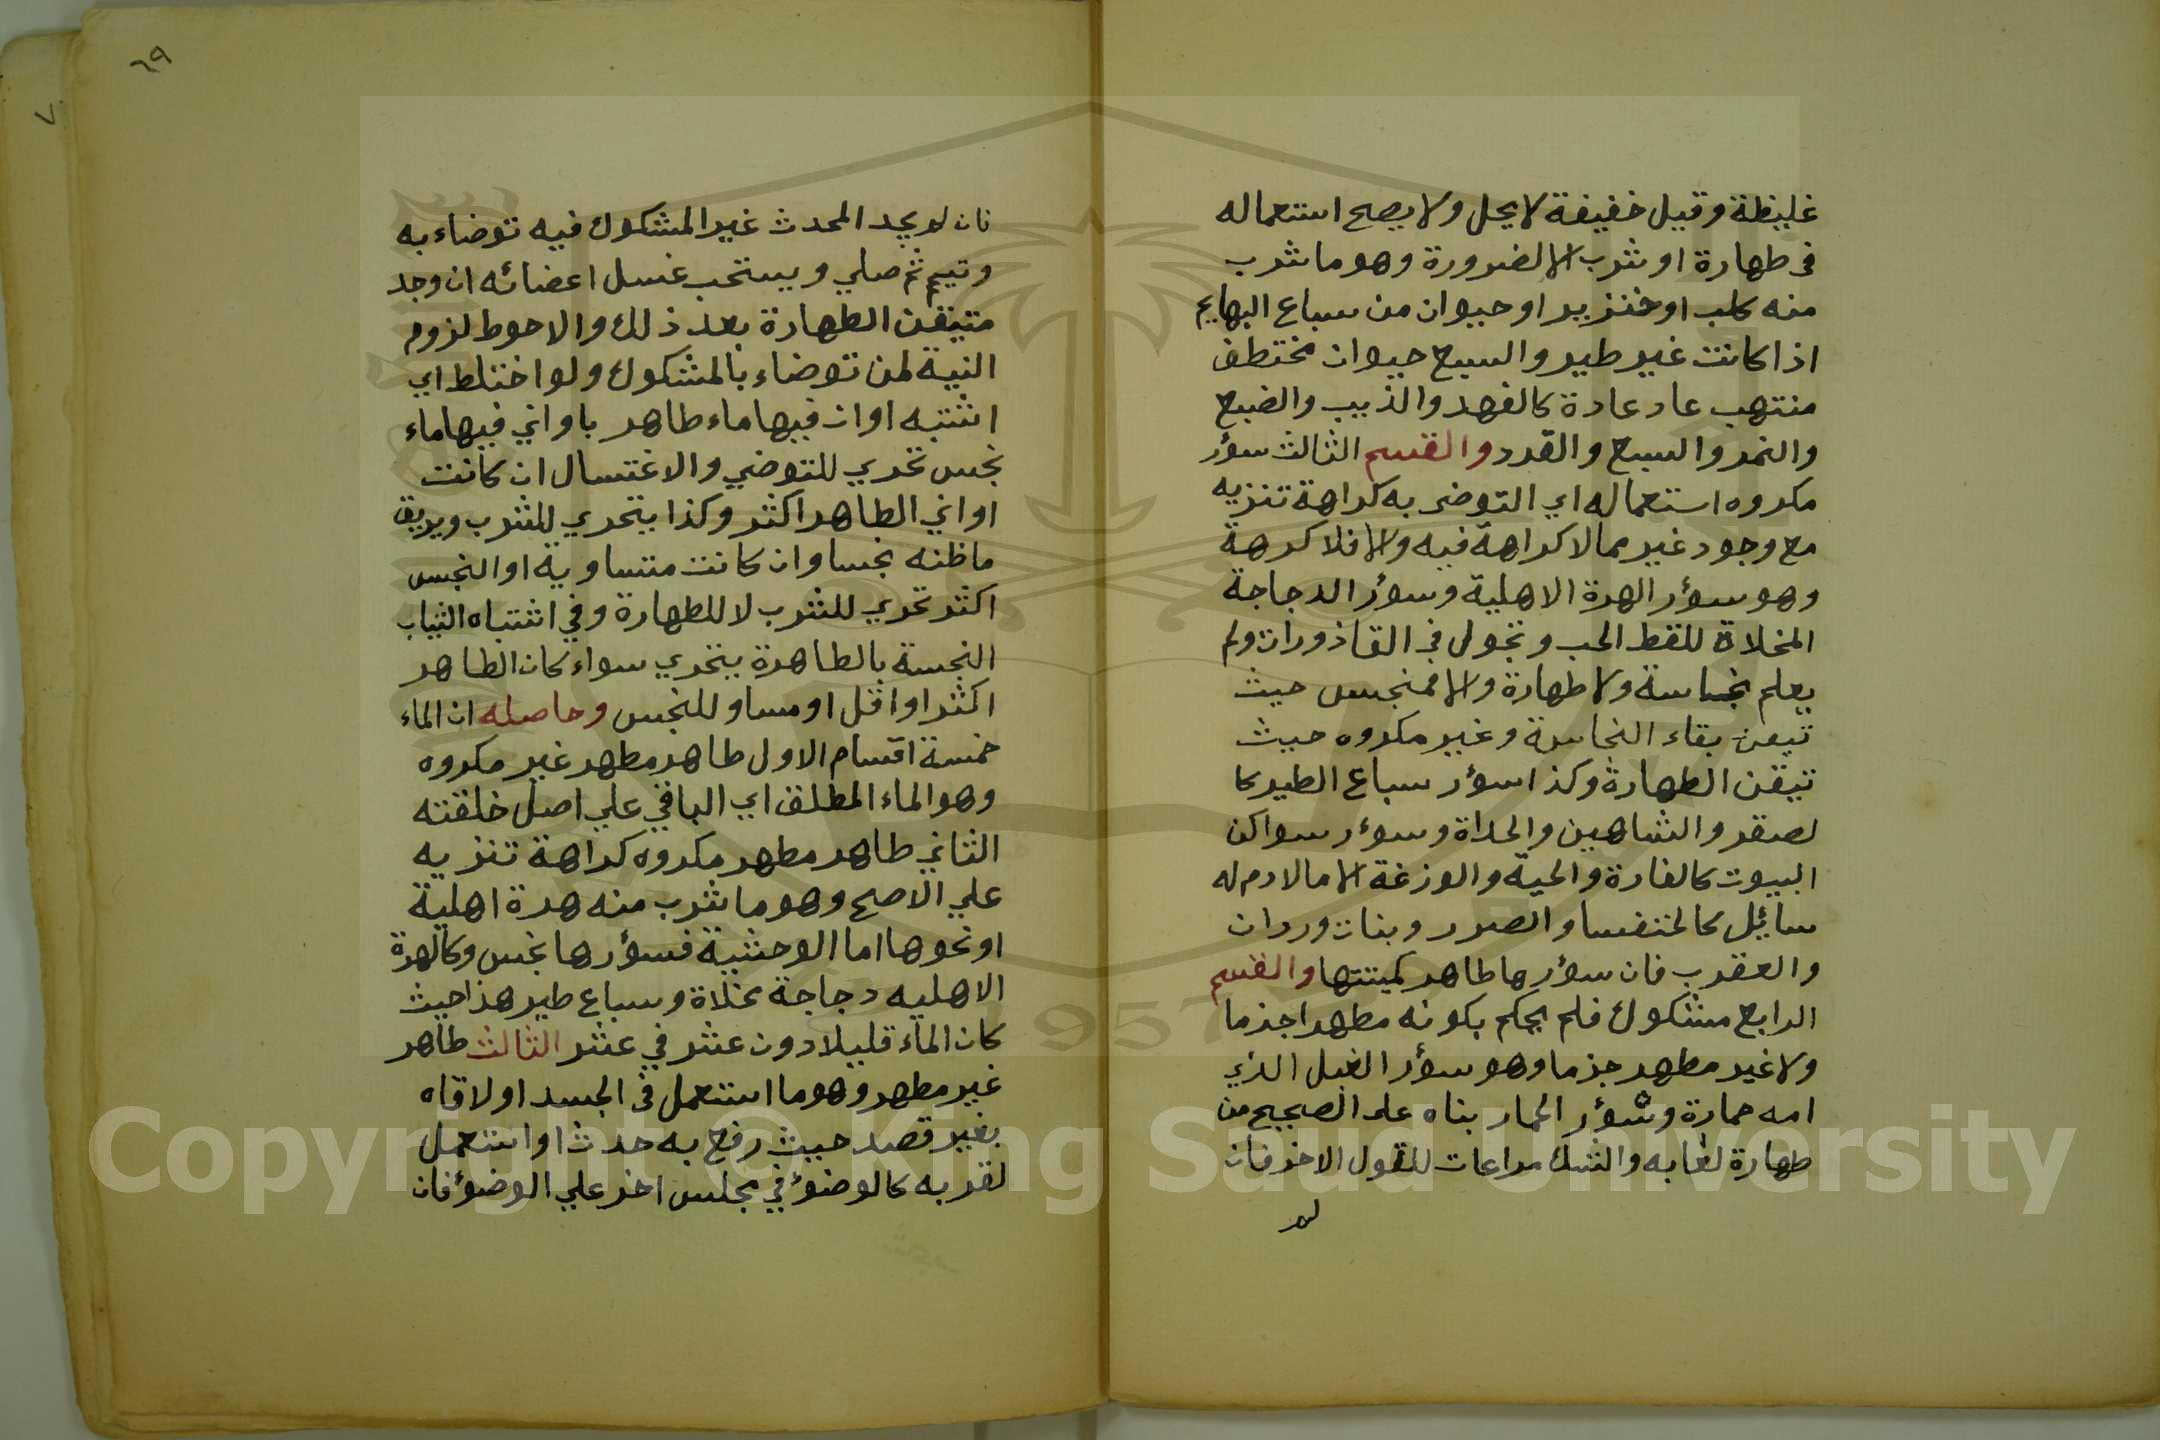 غليظة وقيل خفيفة لا يحل ولا يصح استعماله
في طهارة او شرب الا لضرورة وهو ما شرب
منه كلب او خنزير او حيوان من سباع البهايم
اذا كانت غير طير والسبع حيوان مختطف
منتهب عاد عادة كالفهد والذيب والضبع
والنمر والسبع والقرد والقسم الثالث سؤر
مكروه استعماله اي التوضى به كراهة تنزيه
مع وجود غيره مما لا كراهة فيه والا فلا كرهة
وهو سؤر الهرة الاهلية وسؤر الدجاجة
المخلاة للقط الحب وتجول في القاذورات ولم
يعلم نجاسة ولا طهارة والا فمنجس حيث
تيقن بقاء النجاسة وغير مكروه حيث
تيقن الطهارة وكذا سؤر سباع الطير كا
لصقر والشاهين والحداة وسؤر سواكن
البيوت كالفارة والحية والوزغة الا ما لا دم له
سائل كالخنفسا والصرر وبنات وردان
والعقرب فان سؤرها طاهر كميتتها والقسم
الرابع مشكوك فلم يحكم بكونه مطهرا جذما
ولا غير مطهر جذما وهو سؤر البغل الذي
امه حمارة وسؤر الحمار بناه على الصحيح من
طهارة لعابه والشك مراعات للقول الاخر فان
لم
٦٩
٧٠
فان لم يجد المحدث غير المشكوك فيه توضاء به
وتيمم ثم صلي ويستحب غسل اعضائه ان وجد
متيقن الطهارة بعد ذلك والاحوط لزوم
النية لمن توضاء بالمشكوك ولو اختلط اي
اشتبه اوان فيها ماء طاهر باواني فيها ماء
نجس تحري للتوضي والاغتسال ان كانت
اواني الطاهر اكثر وكذا يتحري للشرب ويريق
ما ظنه نجسا وان كانت متساوية او النجس
اكثر تحري للشرب لا للطهارة وفي اشتباه الثياب
النجسة بالطاهرة يتحري سواء كان الطاهر
اكثر او اقل او مساو للنجس وحاصله ان الماء
خمسة اقسام الاول طاهر مطهر غير مكروه
وهو الماء المطلق اي الباقي علي اصل خلقته
الثاني طاهر مطهر مكروه كراهة تنزيه
علي الاصح وهو ما شرب منه هرة اهلية
او نحوها اما الوحشية فسؤرها نجس وكالهرة
الاهليه دجاجة مخلاة وسباع طير هذا حيث
كان الماء قليلا دون عشر في عشر الثالث طاهر
غير مطهر وهو ما استعمل في الجسد او لاقاه
بغير قصد حيث رفع به حدث او استعمل
لقربه كالوضوء في مجلس اخر علي الوضوء فان
Copyright © King Saud University
1957